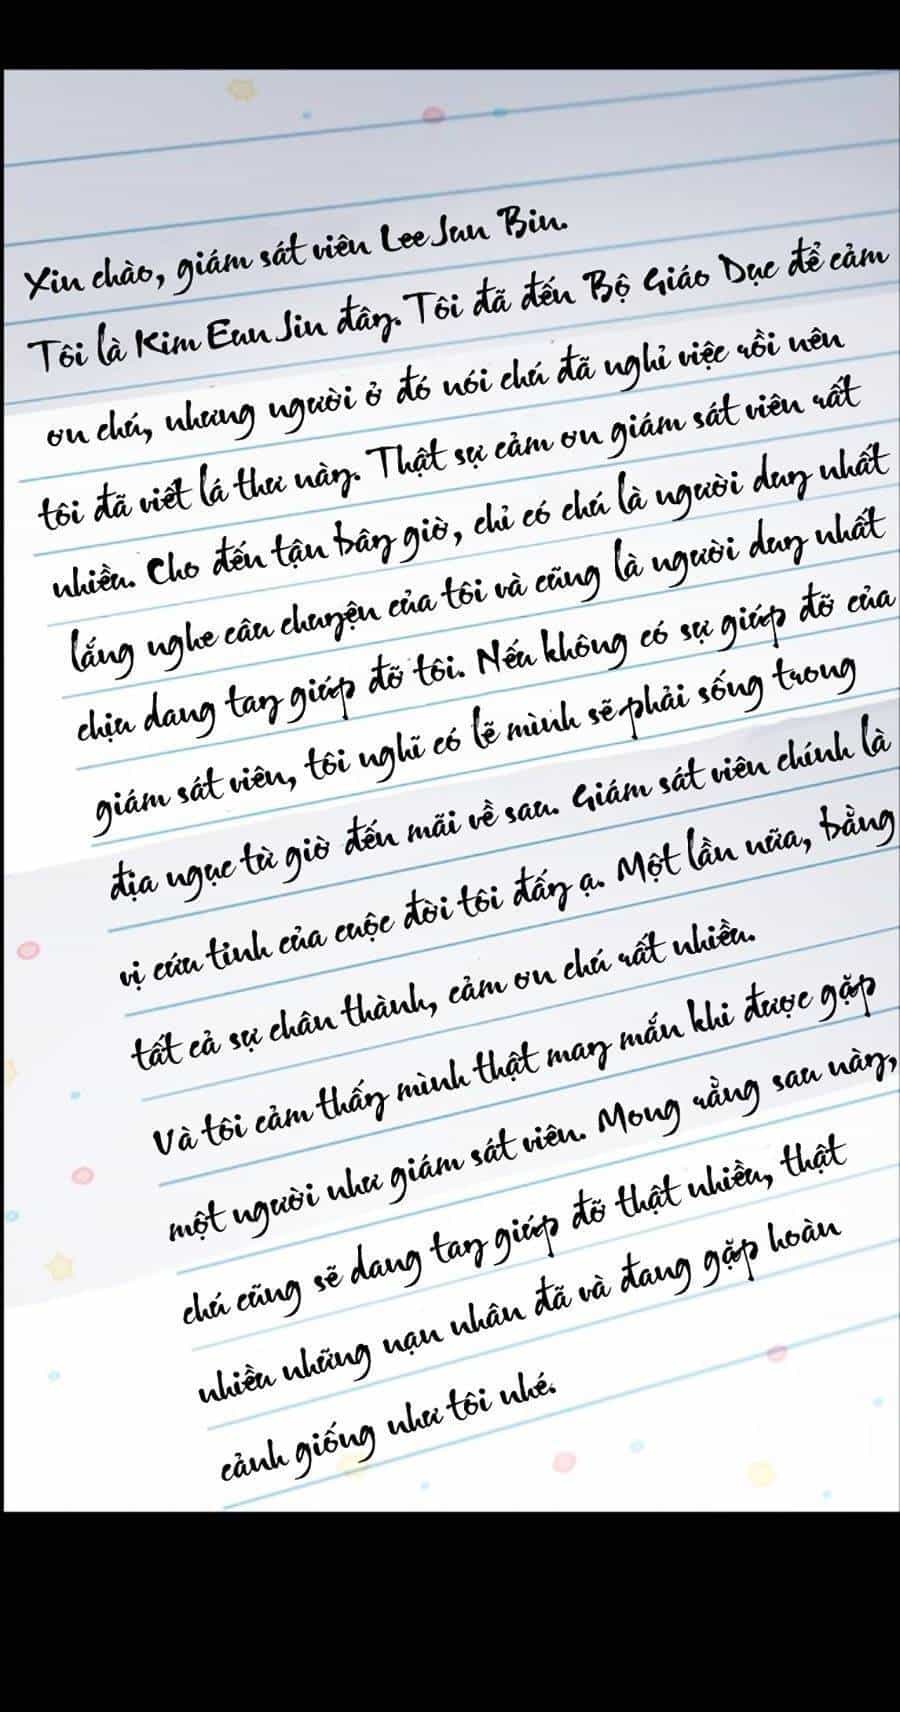 Xin chào, giám sát viên Lee Jun Bin.
Tôi là Kim Eun Jin đây. Tôi đã đến Bộ Giáo Dục để cảm
ơn chú, nhưng người ở đó nói chú đã nghỉ việc rồi nên
tôi đã viết lá thư này. Thật sự cảm ơn giám sát viên rất
nhiều. Cho đến tận bây giờ, chỉ có chú là người duy nhất
lắng nghe câu chuyện của tôi và cũng là người duy nhất
chịu dang tay giúp đỡ tôi. Nếu không có sự giúp đỡ của
giám sát viên, tôi nghĩ có lẽ mình sẽ phải sống trong
địa ngục từ giờ đến mãi về sau. Giám sát viên chính là
vị cứu tinh của cuộc đời tôi đấy ạ. Một lần nữa, bằng
tất cả sự chân thành, cảm ơn chú rất nhiều.
Và tôi cảm thấy mình thật may mắn khi được gặp
một người như giám sát viên. Mong rằng sau này,
chú cũng sẽ dang tay giúp đỡ thật nhiều, thật
nhiều những nạn nhân đã và đang gặp hoàn
cảnh giống như tôi nhé.